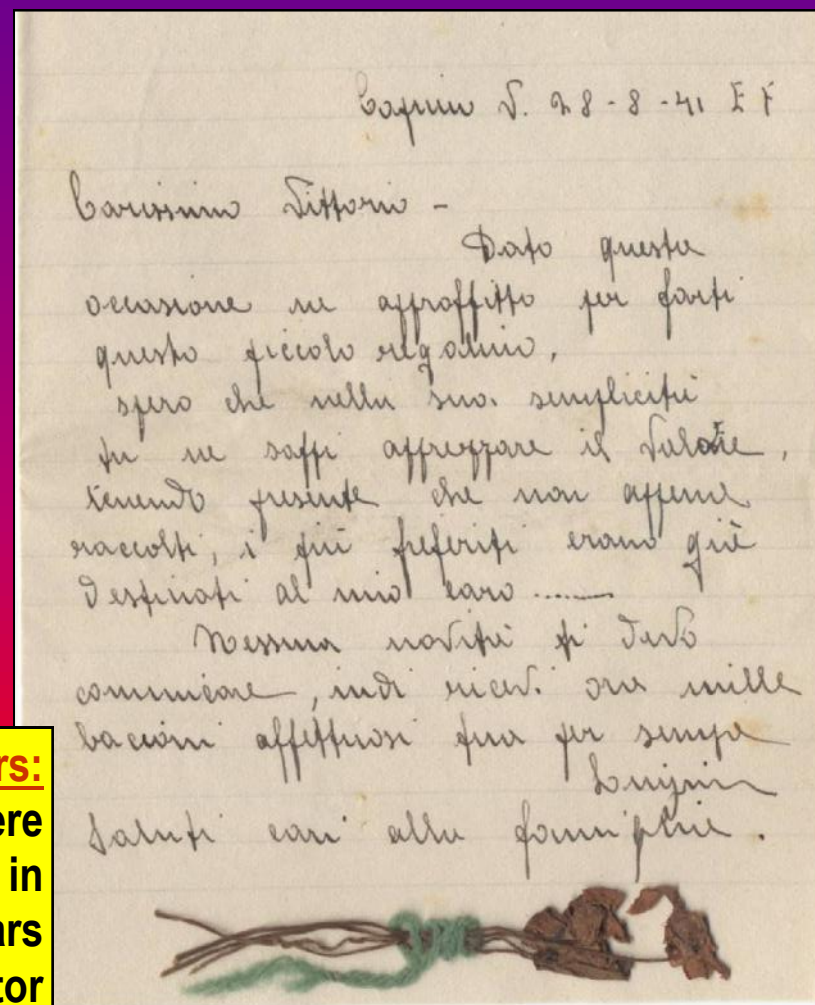 V. 28-8-41 E F
Carissimo Vittorio -
Dato questa
occasione ne approffitto per farti
questo piccolo regalino,
spero che nella sua semplicità
tu ne sappi apprezzare il valore,
tenendo presente che non appena
raccolti, i più preferiti erano già
destinati al mio caro ......
Nessuna novità ti devo
comunicare, indi ricevi ora mille
bacioni affettuosi tua per sempre
Luigin
Saluti cari alla famiglia.
rs:
ere
in
ars
tor